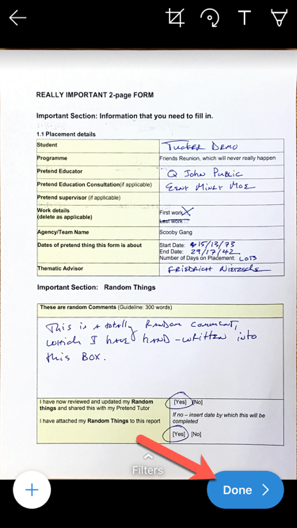 T
REALLY IMPORTANT 2-page FORM
Important Section: Information that you need to fill in.
1.1 Placement details
Student Tucker Demo
Programme Friends Reunion, which will never really happen
Pretend Educator Q John Public
Pretend Education Consultation(if applicable) Eeny Miney Moe
Pretend supervisor (if applicable)
Work details First work
(delete as applicable) Last work
Agency/Team Name Scooby Gang
Dates of pretend thing this form is about Start Date: 15/13/73
End Date: 29/17/42
Number of Days on Placement: LOTS
Thematic Advisor FRIEDRICH NIETZSCHE
Important Section: Random Things
These are random Comments (Guideline: 300 words)
This is a totally Random comment,
which I have HAND-written into
this Box.
I have now reviewed and updated my Random [Yes] [No]
things and shared this with my Pretend Tutor
If no – insert date by which this will be
completed
I have attached my Random Things to this report [Yes] [No]
Filters
Done